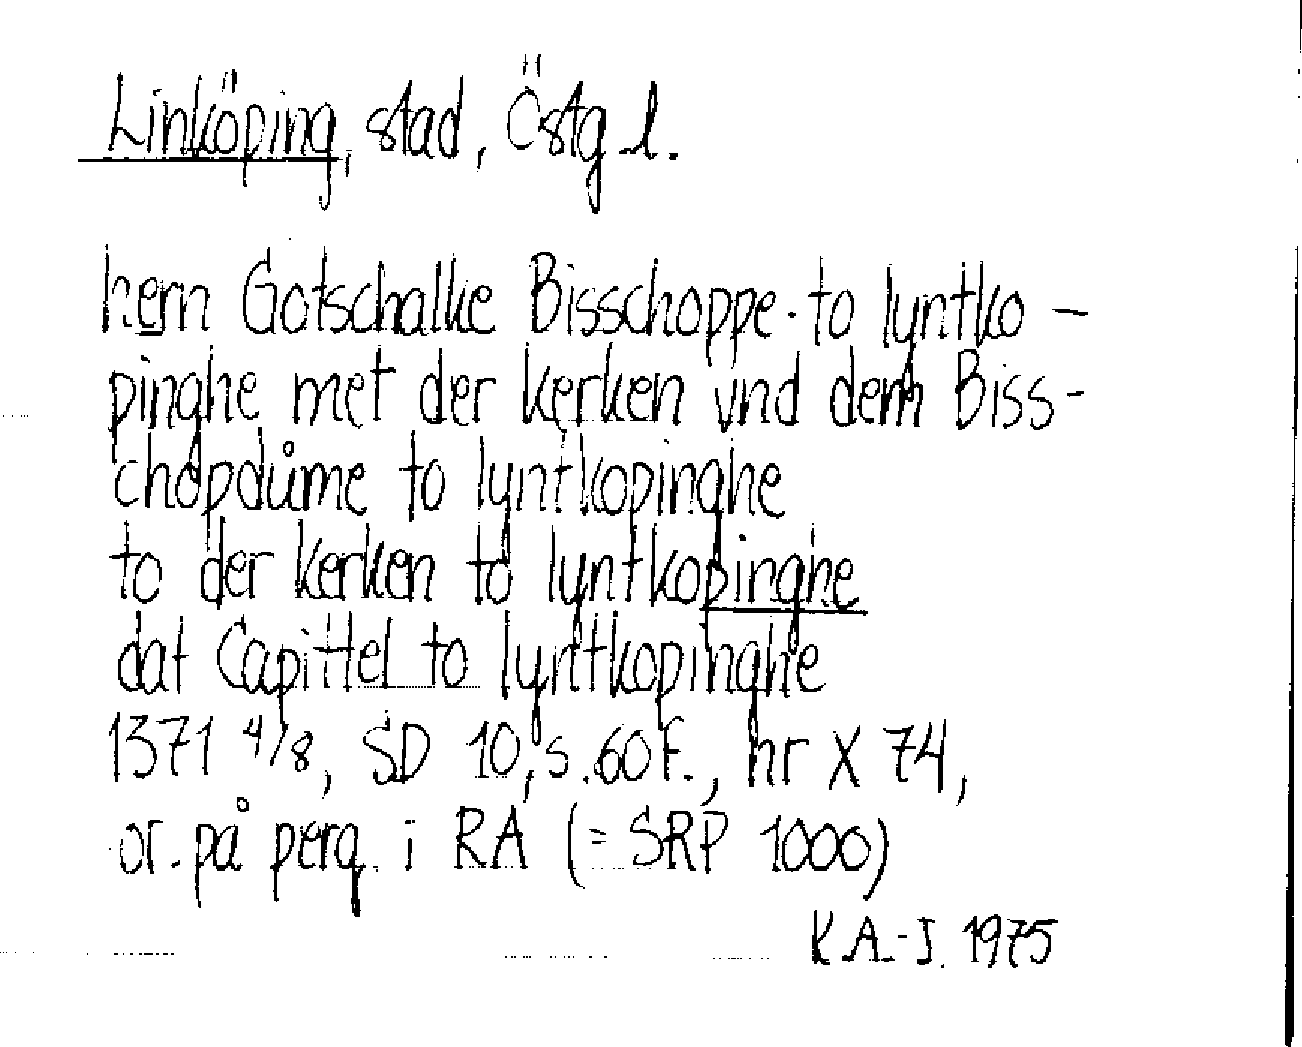 Linköping, stad, Östg l.
hern Gotschalke Bisschoppe to lyntko-
pinghe met der kerken vnd dem Biss-
chopdůme to lyntkopinghe
to der kerken to lyntkopinghe
dat Capittel to lyntkopinghe
1371 4/8, SD 10, s. 60 f., nr X 74,
or. på perg. i RA (= SRP 1000)
K A.-J. 1975